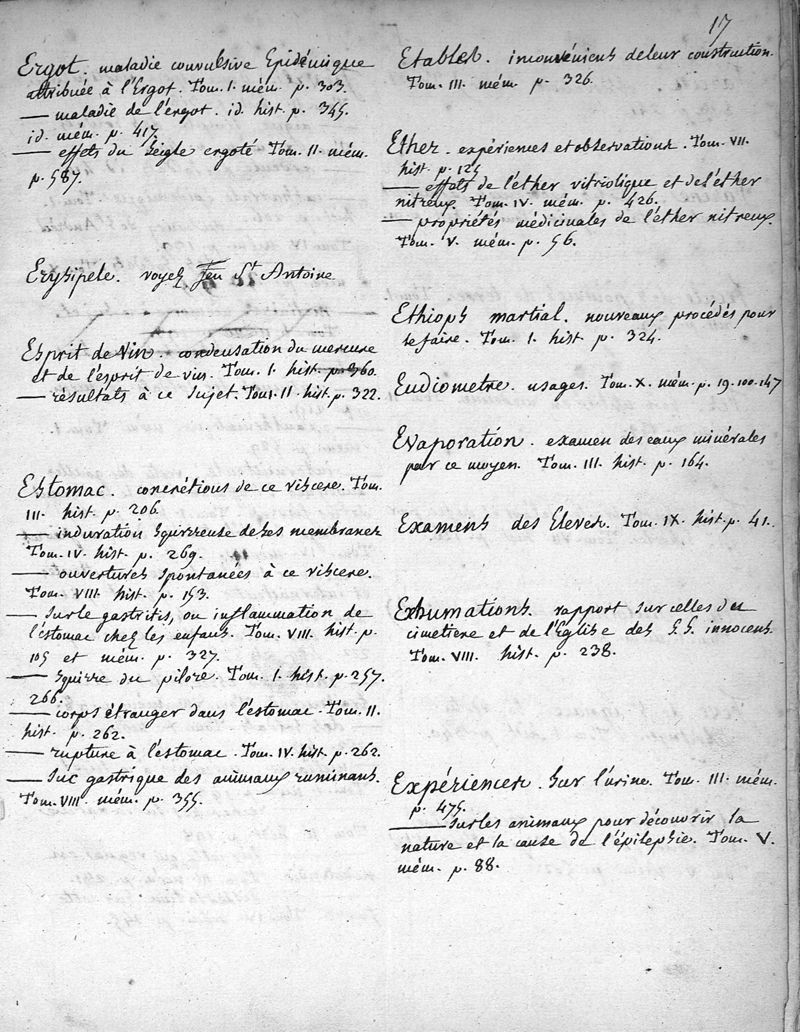 17
Ergot. maladie convulsive Epidémique
attribuée à l'Ergot. Tom. I. mém. p. 303.
— maladie de l'ergot. id. hist. p. 345.
id. mém. p. 417
— effets du Seigle ergoté Tom. II. mém.
p. 587.
Erysipele. voyez feu St Antoine
Esprit de Vin. condensation du mercure
et de l'esprit de vin. Tom. I. hist. p. 360.
— résultats à ce sujet. Tom. II. hist. p. 322.
Estomac. concrétions de ce viscere. Tom.
III. hist. p. 206.
— induration squirreuse de ses membranes
Tom. IV. hist. p. 269.
— ouvertures spontanées à ce viscere.
Tom. VIII hist. p. 153.
— sur le gastritis, ou inflammation de
l'estomac chez les enfans. Tom. VIII. hist. p.
105 et mém. p. 327.
— squirre du pilore. Tom. I. hist. p. 257.
266.
— corps étranger dans l'estomac. Tom. II.
hist. p. 262.
— rupture à l'estomac. Tom. IV. hist. p. 262.
— suc gastrique des animaux ruminans.
Tom. VIII. mém. p. 355.
Etables. inconvéniens de leur construction.
Tom. III. mém. p. 326.
Ether. expériences et observations. Tom. VII.
hist. p. 125
— effets de l'éther vitriolique et de l'éther
nitreux. Tom. IV. mém. p. 426.
— propriétés médicinales de l'éther nitreux.
Tom. V. mém. p. 56.
Ethiops martial. nouveaux procédés pour
le faire. Tom. I. hist. p. 324.
Eudiometre. usages. Tom. X. mém. p. 19. 100. 147
Evaporation. examen des eaux minérales
par ce moyen. Tom. III. hist. p. 164.
Examens des Eleves. Tom. IX. hist. p. 41.
Exhumations. rapport sur celles du
cimetiere et de l'Eglise des S.S. innocens.
Tom. VIII. hist. p. 238.
Expériences. Sur l'urine. Tom. III. mém.
p. 475.
— sur les animaux pour découvrir la
nature et la cause de l'épilepsie. Tom. V.
mém. p. 88.